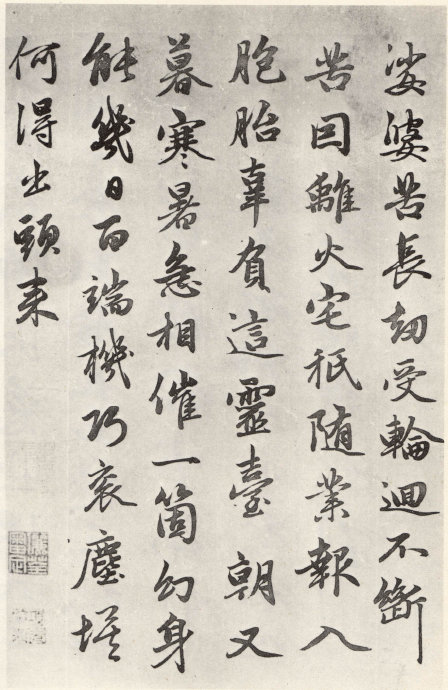 娑婆苦長劫受輪迴不斷
苦因離火宅秖随業報入
胞胎辜負這靈臺 朝又
暮寒暑急相催一箇幻身
能幾日百端機巧衮塵埃
何得出頭来